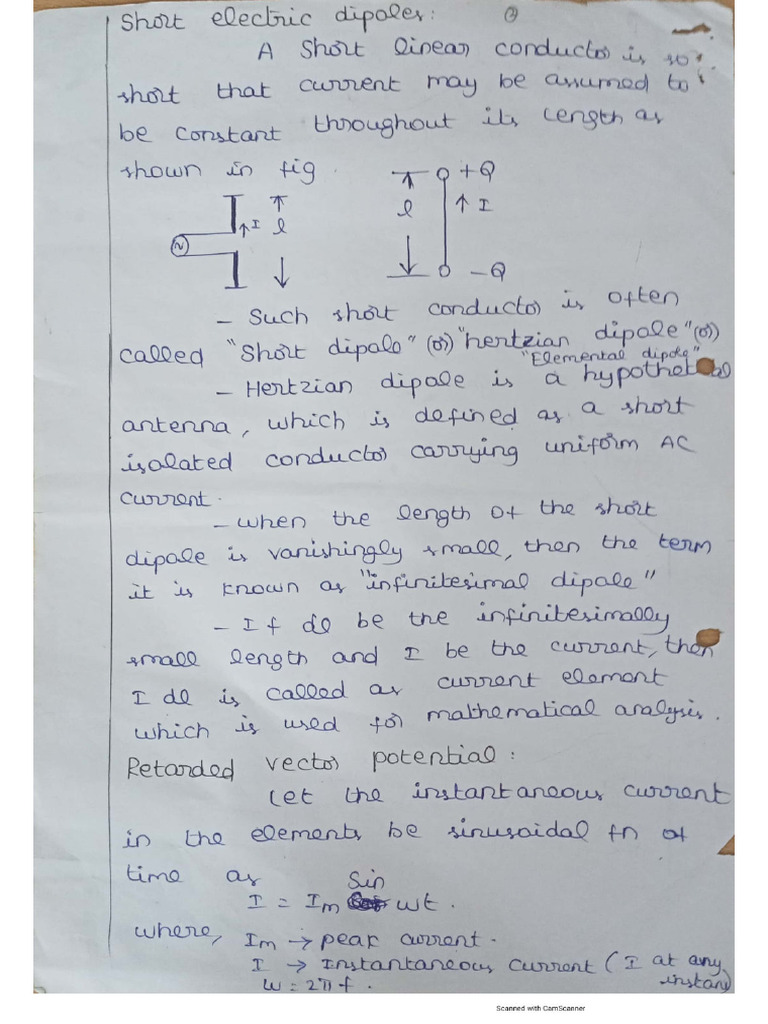 Short electric dipoles:
A short linear conductor is so
short that current may be assumed to
be constant throughout its length as
shown in fig.
+Q
l
↑ I
↑ I
l
N
-Q
- Such short conductor is often
called "Short dipole" (or) "hertzian dipole" (or)
"Elemental dipole"
- Hertzian dipole is a hypothetical
antenna, which is defined as a short
isolated conductor carrying uniform AC
current.
- when the length of the short
dipole is vanishingly small, then the term
it is known as "infinitesimal dipole"
- If dl be the infinitesimally
small length and I be the current, then
I dl is called as current element
which is used for mathematical analysis.
Retarded vector potential:
Let the instantaneous current
in the elements be sinusoidal fn of
time as
Sin
I = Im wt.
where, Im → peak current.
I → Instantaneous current (I at any
instan)
w = 2πf.
Scanned with CamScanner